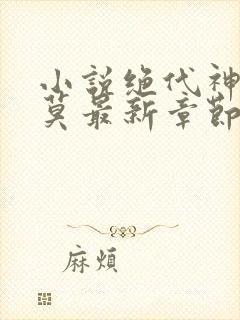 小説绝代神
莫最新章節
麻煩